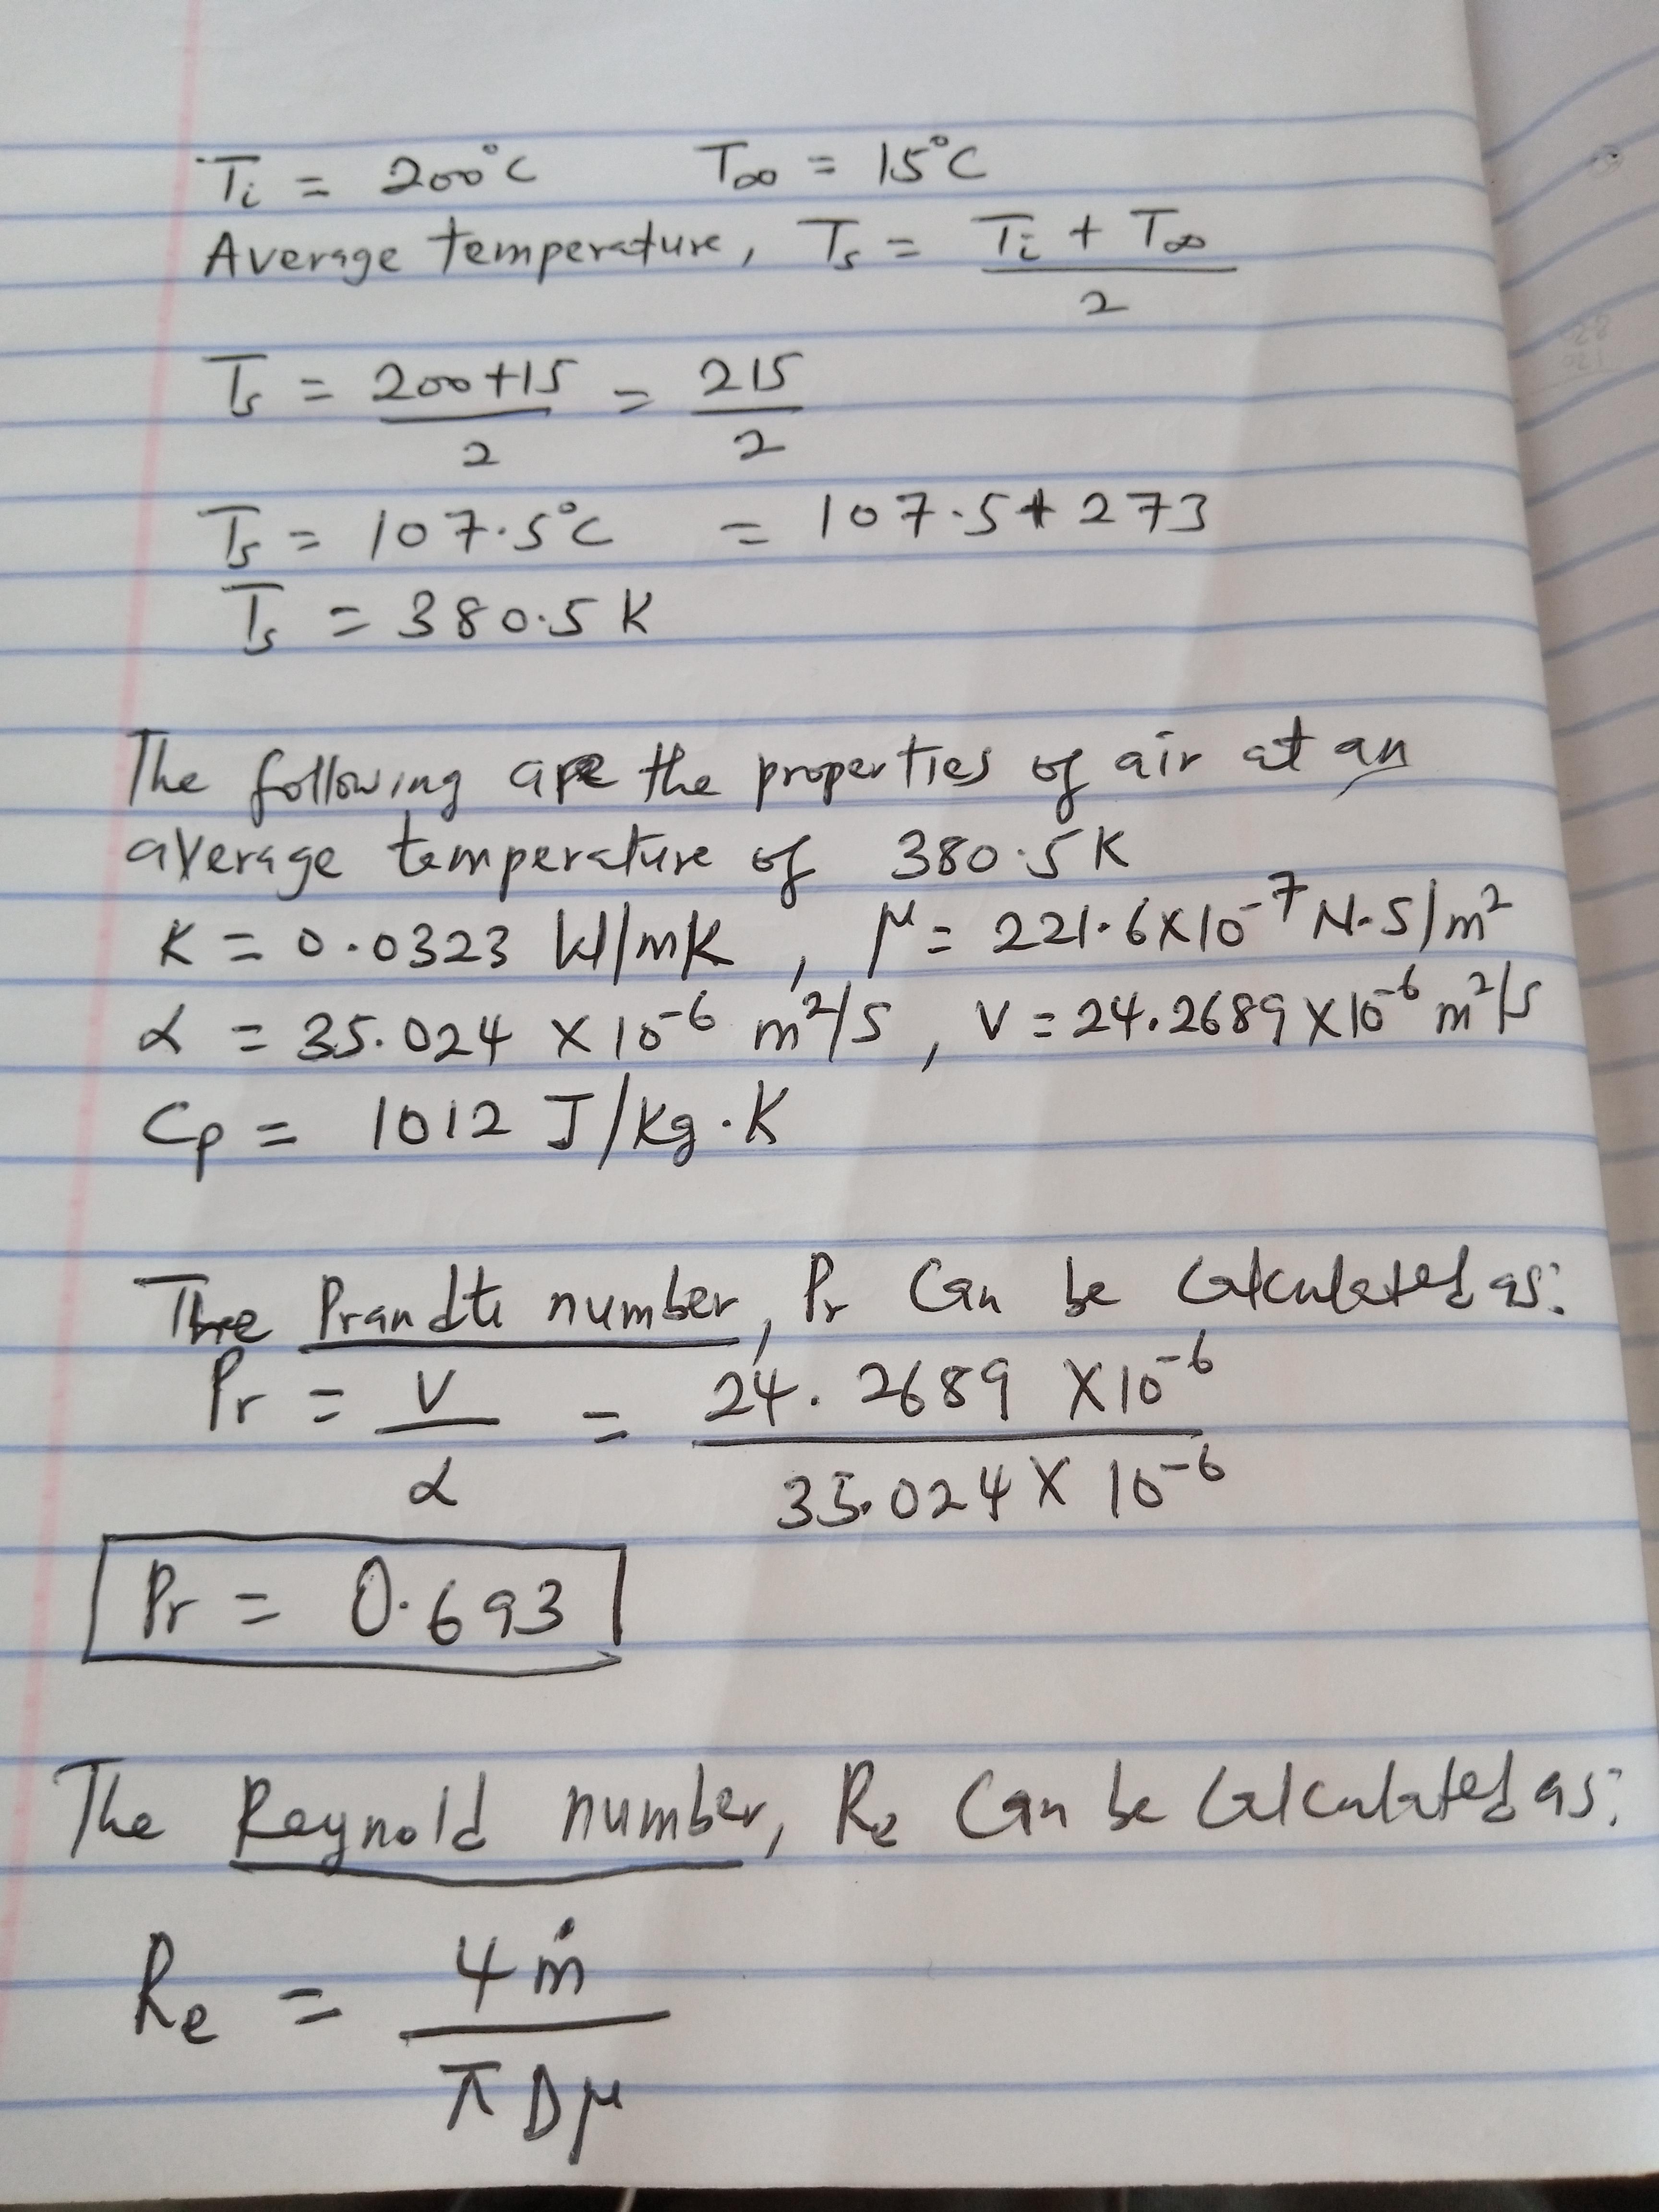 Ti = 200°C T∞ = 15°C
Average temperature, Ts = Ti + T∞ / 2
Ts = 200+15 / 2 = 215 / 2
Ts = 107.5°C = 107.5 + 273
Ts = 380.5 K
The following are the properties of air at an
average temperature of 380.5 K
K = 0.0323 W/mK, μ = 221.6×10⁻⁷ N·S/m²
α = 35.024 × 10⁻⁶ m²/s, V = 24.2689 × 10⁻⁶ m²/s
Cp = 1012 J/kg·K
The Prandtl number, Pr Can be Calculated as:
Pr = V / α = 24.2689 × 10⁻⁶ / 35.024 × 10⁻⁶
Pr = 0.693
The Reynold number, Re Can be Calculated as:
Re = 4ṁ / πDμ